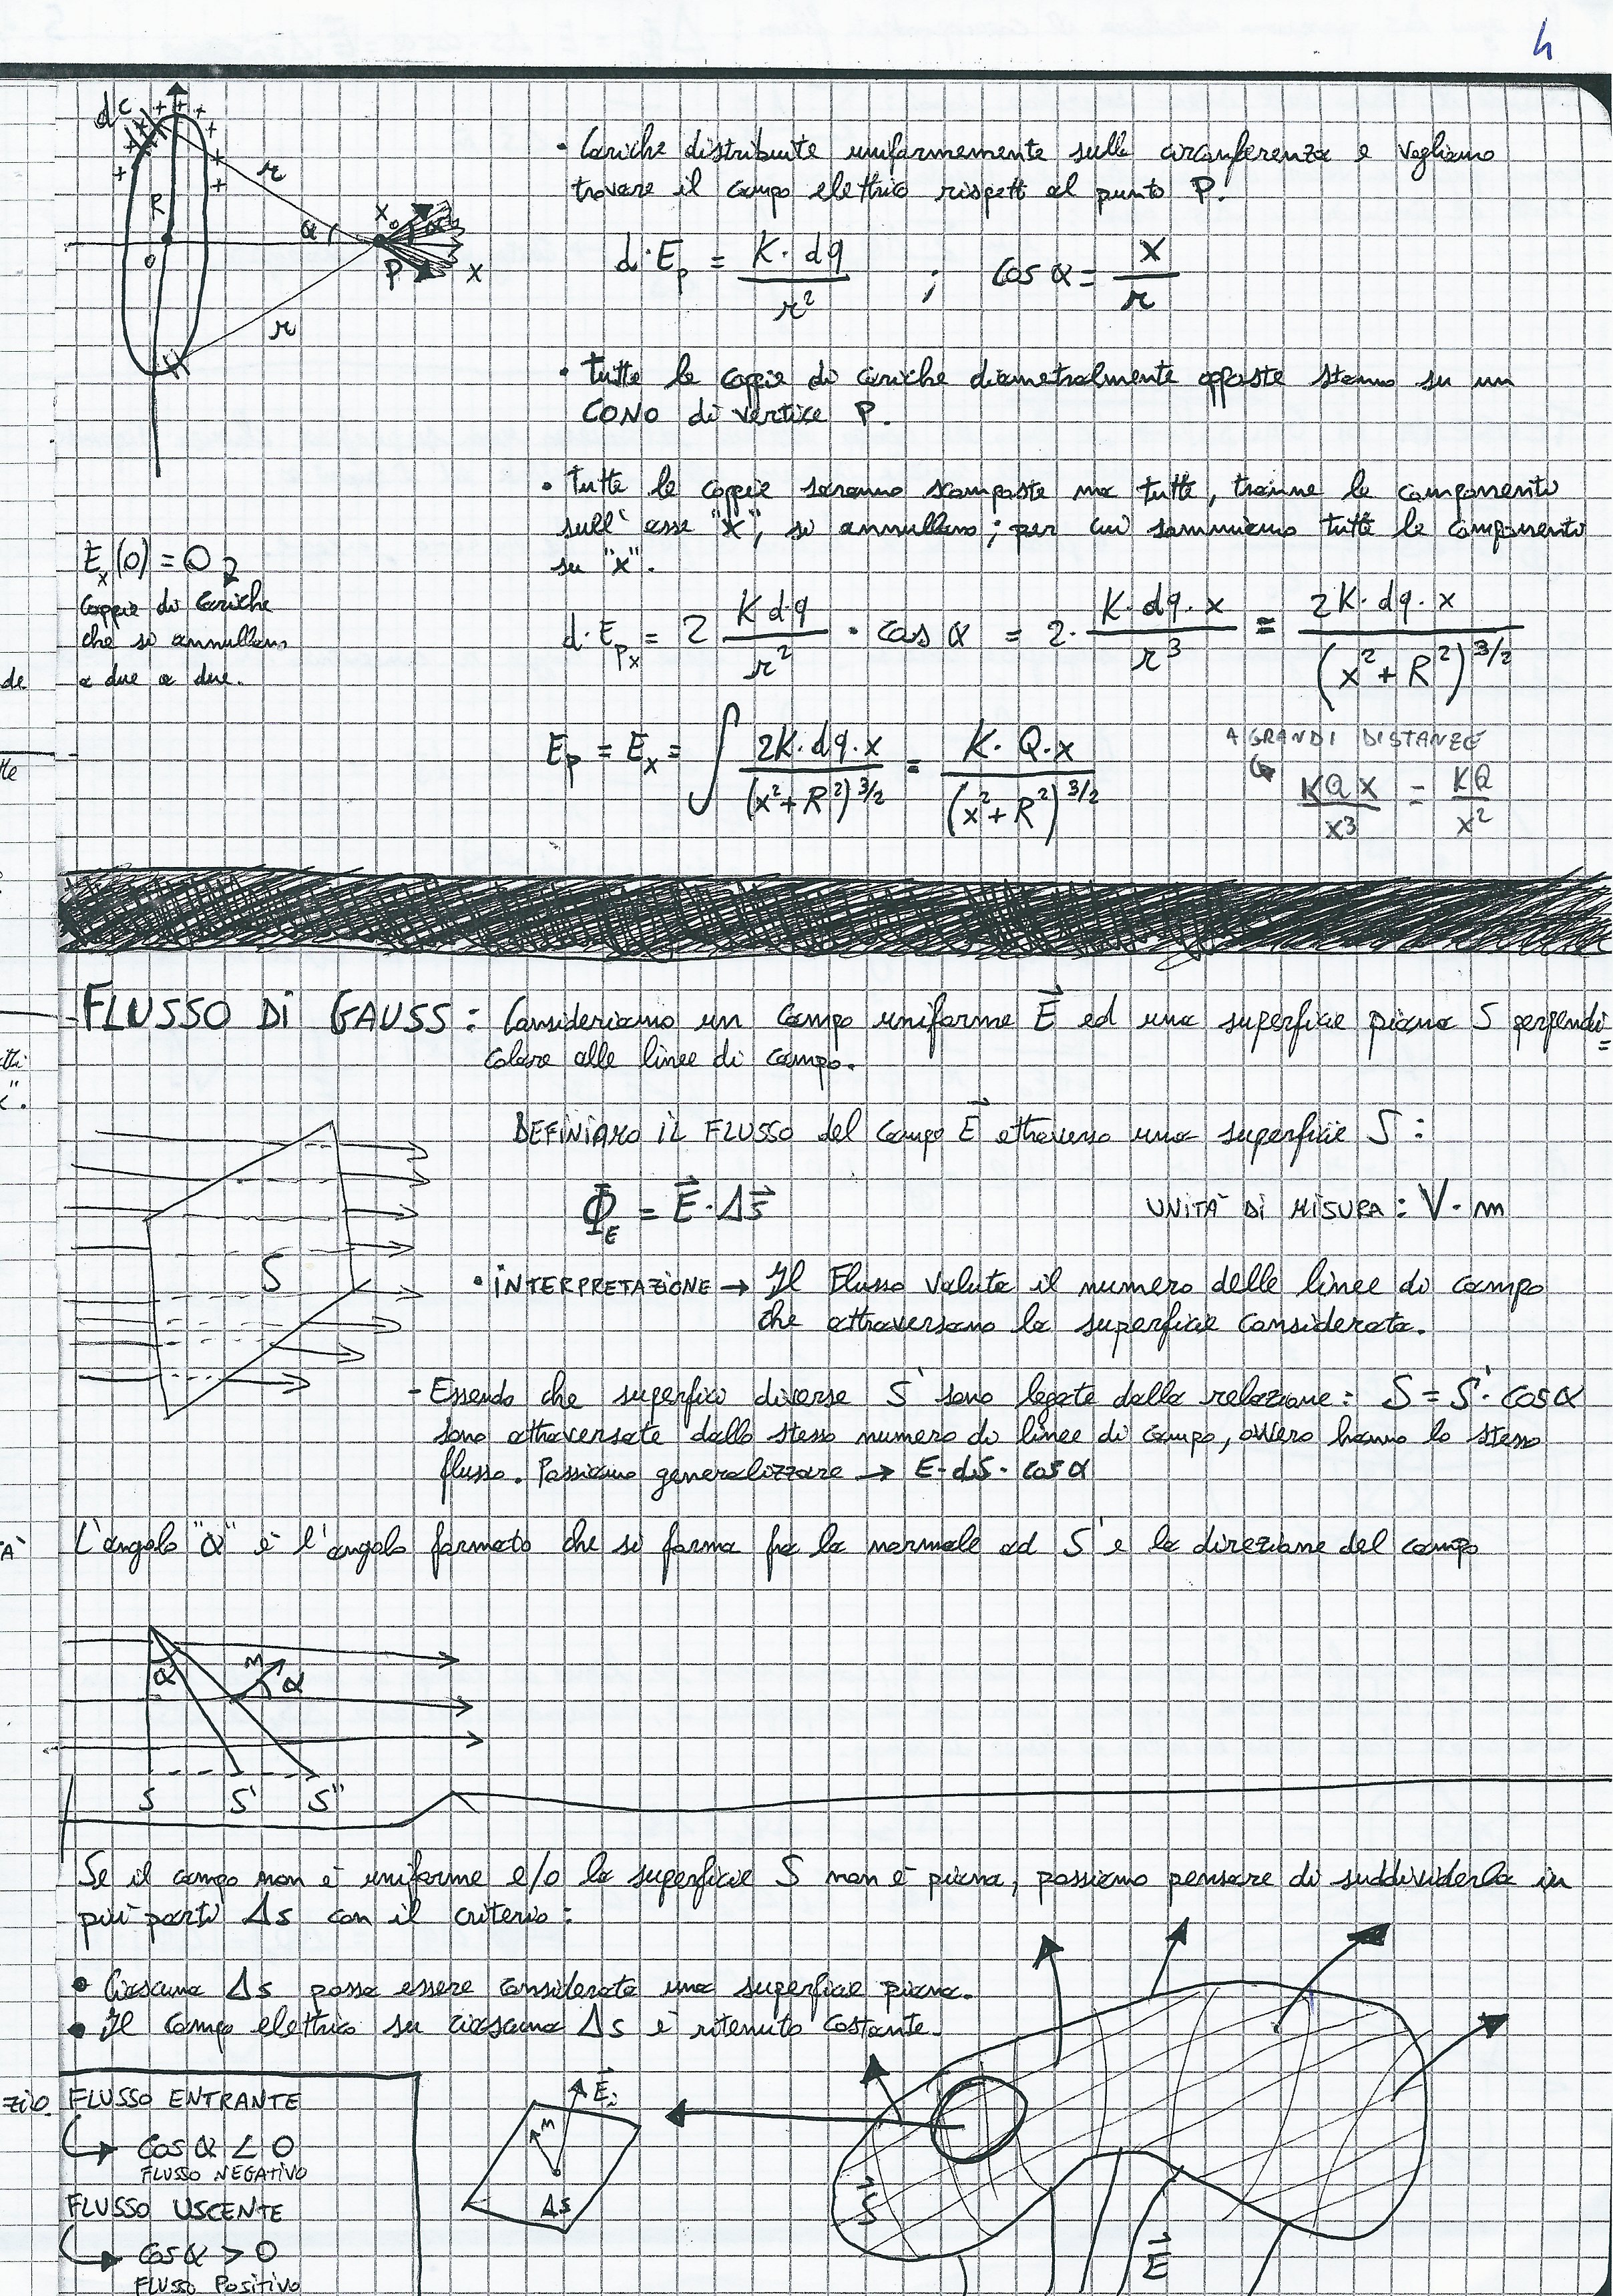 4
dC
+ + + + + + + +
R
r
α
x₀
α
O
P
x
r
• Cariche distribuite uniformemente sulla circonferenza e vogliamo
trovare il campo elettrico rispetto al punto P.
d·E_p = K·dq / r² ; cos α = x / r
• Tutte le coppie di cariche diametralmente opposte stanno su un
CONO di vertice P.
• Tutte le coppie saranno scomposte ma tutte, tranne le componenti
sull'asse "x", si annullano; per cui sommiamo tutte le componenti
su "x".
E_x(0) = 0
Coppie di cariche
che si annullano
a due a due.
d·E_px = 2 K dq / r² · cos α = 2· K·dq·x / r³ = 2K·dq·x / (x²+R²)^3/2
E_p = E_x = ∫ 2K·dq·x / (x²+R²)^3/2 = K·Q·x / (x²+R²)^3/2
A GRANDI DISTANZE
KQx / x³ = KQ / x²
de
FLUSSO DI GAUSS: Consideriamo un campo uniforme E⃗ ed una superficie piana S perpendi=
colare alle linee di campo.
DEFINIAMO IL FLUSSO del campo E⃗ attraverso una superficie S:
Φ_E = E⃗·Δs⃗
UNITÀ DI MISURA: V·m
S
• INTERPRETAZIONE → Il Flusso valuta il numero delle linee di campo
che attraversano la superficie considerata.
- Essendo che superfici diverse S' sono legate dalla relazione: S = S'·cos α
sono attraversate dallo stesso numero di linee di campo, ovvero hanno lo stesso
flusso. Possiamo generalizzare → E·dS·cos α
L'angolo "α" è l'angolo formato che si forma fra la normale ad S' e la direzione del campo
α
n
α
S S' S"
Se il campo non è uniforme e/o la superficie S non è piana, possiamo pensare di suddividerla in
più parti Δs con il criterio:
• Ciascuna Δs possa essere considerata una superficie piana.
• Il campo elettrico su ciascuna Δs è ritenuto costante.
FLUSSO ENTRANTE
↳ cos α < 0
FLUSSO NEGATIVO
FLUSSO USCENTE
↳ cos α > 0
FLUSSO POSITIVO
n
E⃗ᵢ
Δs
S⃗
E⃗